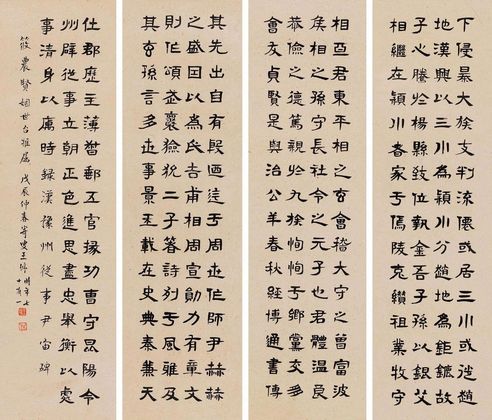 下侵暴大族支判流僊或居三川或徙趙
地漢興以三川為潁川分趙地為鉅鹿故
子心騰於楊縣致位執金吾子孫以銀艾
相繼在潁川者家于傿陵克纘祖業牧守
相亞君東平相之玄會稽大守之曾富波
侯相之孫守長社令之元子也君體溫良
恭儉之德篤親于九族恂恂于鄉黨交朋
會友貞賢是與治公羊春秋經博通書傳
其先出自有殷迺迄于周世作師尹赫赫
之盛因以為氏吉甫相周宣勳力有章文
則作頌武襄獫狁二子著詩列于風雅及
其玄孫言多世事景王載在史典秦兼天
仕郡歷主簿督郵五官掾功曹守昆陽令
州辟從事立朝正色進思盡忠舉衡以處
事清身以厲時 錄漢豫州從事尹宙碑
筱農賢姻世台雅屬 戊辰仲春 王 時年七十有一